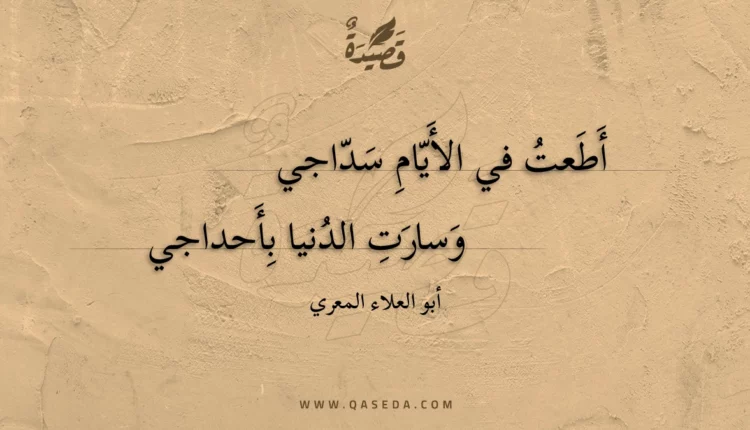 قَصِيدَةٌ
أَطَعتُ في الأَيّامِ سَدّاجي
وَسارَتِ الدُنيا بِأَحداجي
أبو العلاء المعري
WWW.QASEDA.COM